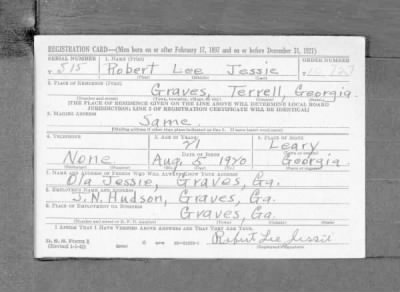 REGISTRATION CARD—(Men born on or after February 17, 1897 and on or before December 31, 1921)
SERIAL NUMBER 1. NAME (Print) ORDER NUMBER
T 515 Robert Lee Jessie
2. PLACE OF RESIDENCE (Print)
Graves, Terrell, Georgia
[THE PLACE OF RESIDENCE GIVEN ON THE LINE ABOVE WILL DETERMINE LOCAL BOARD
JURISDICTION; LINE 2 OF REGISTRATION CERTIFICATE WILL BE IDENTICAL]
3. MAILING ADDRESS
Same
4. TELEPHONE 5. AGE IN YEARS 6. PLACE OF BIRTH
21 Leary
DATE OF BIRTH
None Aug 5 1920 Georgia
7. NAME AND ADDRESS OF PERSON WHO WILL ALWAYS KNOW YOUR ADDRESS
Ola Jessie, Graves, Ga.
8. EMPLOYER'S NAME AND ADDRESS
J. N. Hudson, Graves, Ga.
9. PLACE OF EMPLOYMENT OR BUSINESS
Graves, Ga.
I AFFIRM THAT I HAVE VERIFIED ABOVE ANSWERS AND THAT THEY ARE TRUE.
D. S. S. Form 1
(Revised 1-1-42)
Robert Lee Jessie